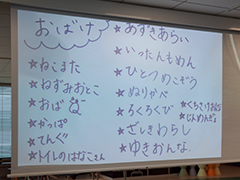 おばけ
★ねこまた
★ねずみおとこ
★おば
★かっぱ
★てんぐ
★トイレのはなこさん
★あずきあらい
★いったんもめん
★ひとつめこぞう
★ぬりかべ
★ろくろくび
★ざしきわらし
★ゆきおんな
★くちさけおんな
★じんめんけん